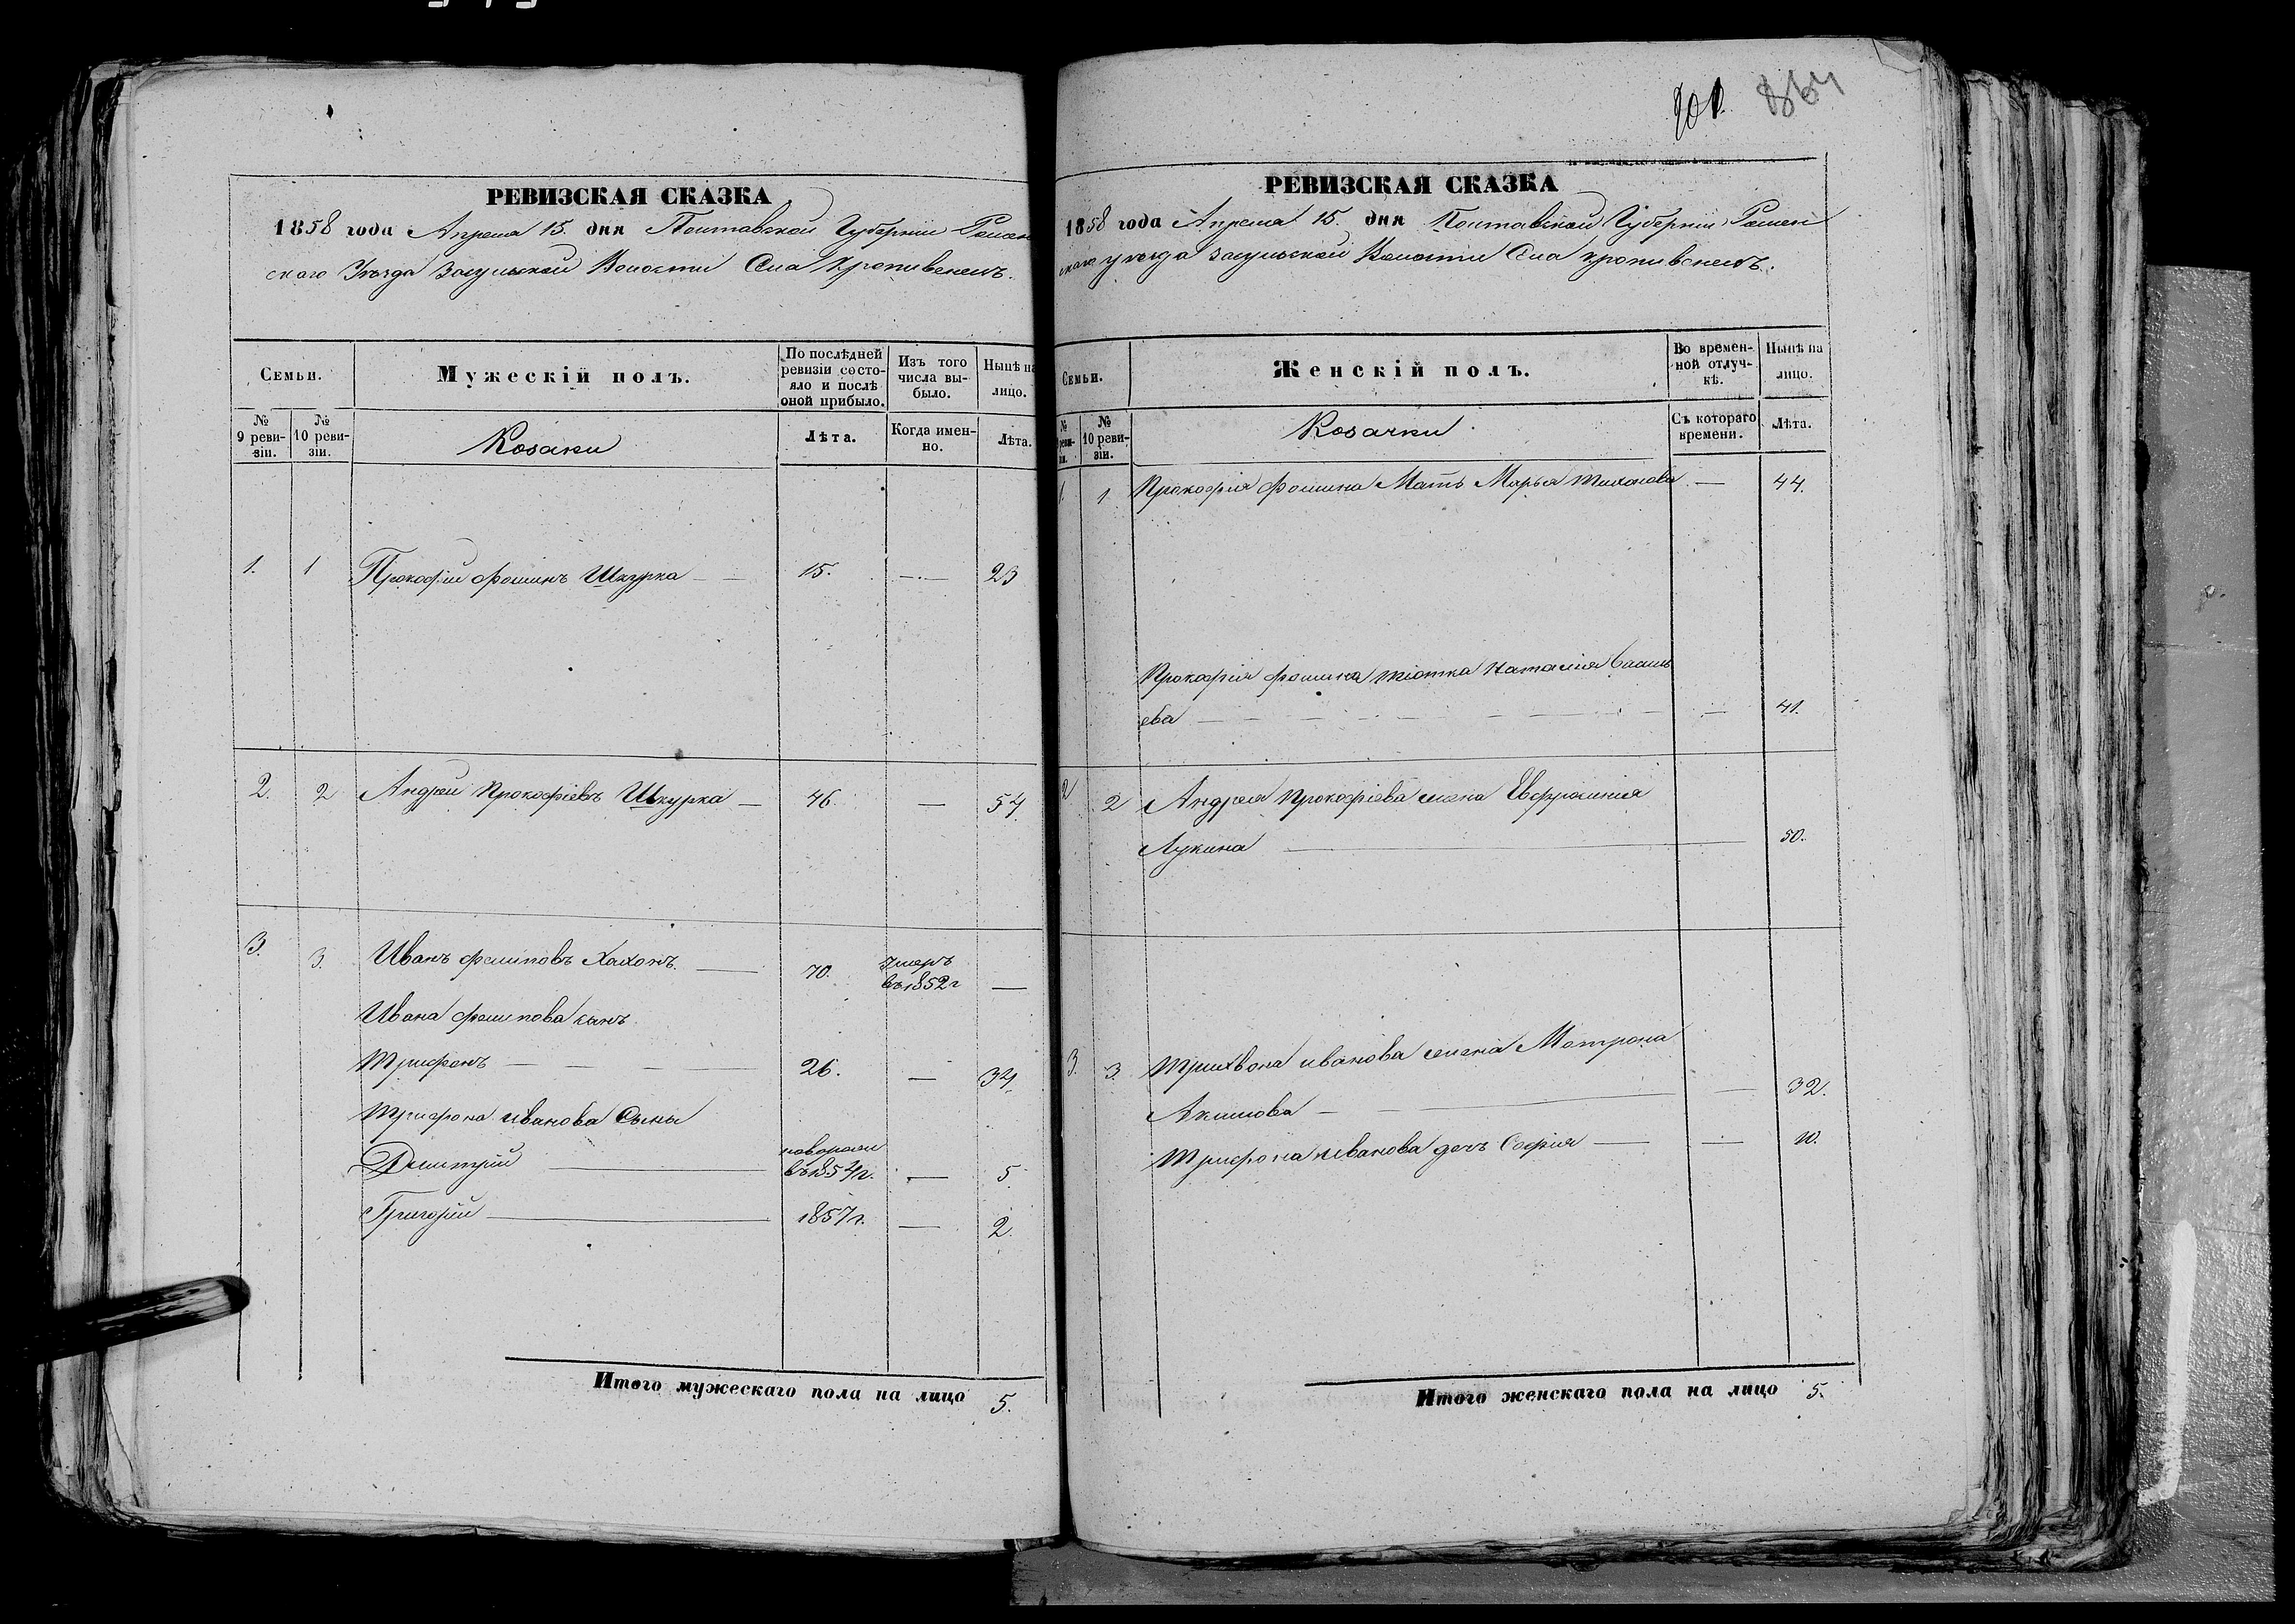 РЕВИЗСКАЯ СКАЗКА
1858 года Апреля 15. дня Полтавской Губернии Ромен
скаго Уѣзда Засульской Волости Села Кропивенецъ.
Семьи.
Мужескій полъ.
По послѣдней ревизіи состояло и послѣ оной прибыло.
Изъ того числа выбыло.
Нынѣ на лицо.
№ 9 ревизіи.
№ 10 ревизіи.
Козаки
Лѣта.
Когда именно.
Лѣта.
1. 1 Прокофій Фоминъ Шкурка — 15. — 23
2. 2 Андрей Прокофіевъ Шкурка — 46. — 54
3. 3. Иванъ Филиповъ — 70. умеръ въ 1852 г —
Ивана Филипова сынъ
Трифонъ — 26. — 34.
Трифона Иванова Сыны
Дмитрій — новорожд въ 1854 г. — 5.
Григорій — 1857 г. — 2.
Итого мужескаго пола на лицо 5.
901. 864
РЕВИЗСКАЯ СКАЗКА
1858 года Апреля 15. дня Полтавской Губерніи Ромен
скаго уѣзда Засульской Волости Села Кропивенецъ.
Семьи.
Женскій полъ.
Во временной отлучкѣ.
Нынѣ на лицо.
№ ревизіи.
№ 10 ревизіи.
Козачки
Съ котораго времени.
Лѣта.
1. 1. Прокофія Фомина Мать Марья Тихонова — 44.
Прокофія Фомина тіотка Наталія
ева — 41.
2 2 Андрея Прокофіева жена Евфросинія
Лукина — 50.
3. 3. Трихвона Иванова жена Мотрона
Акимова — 32.
Трифона Иванова дочь Софія — 10.
Итого женскаго пола на лицо 5.